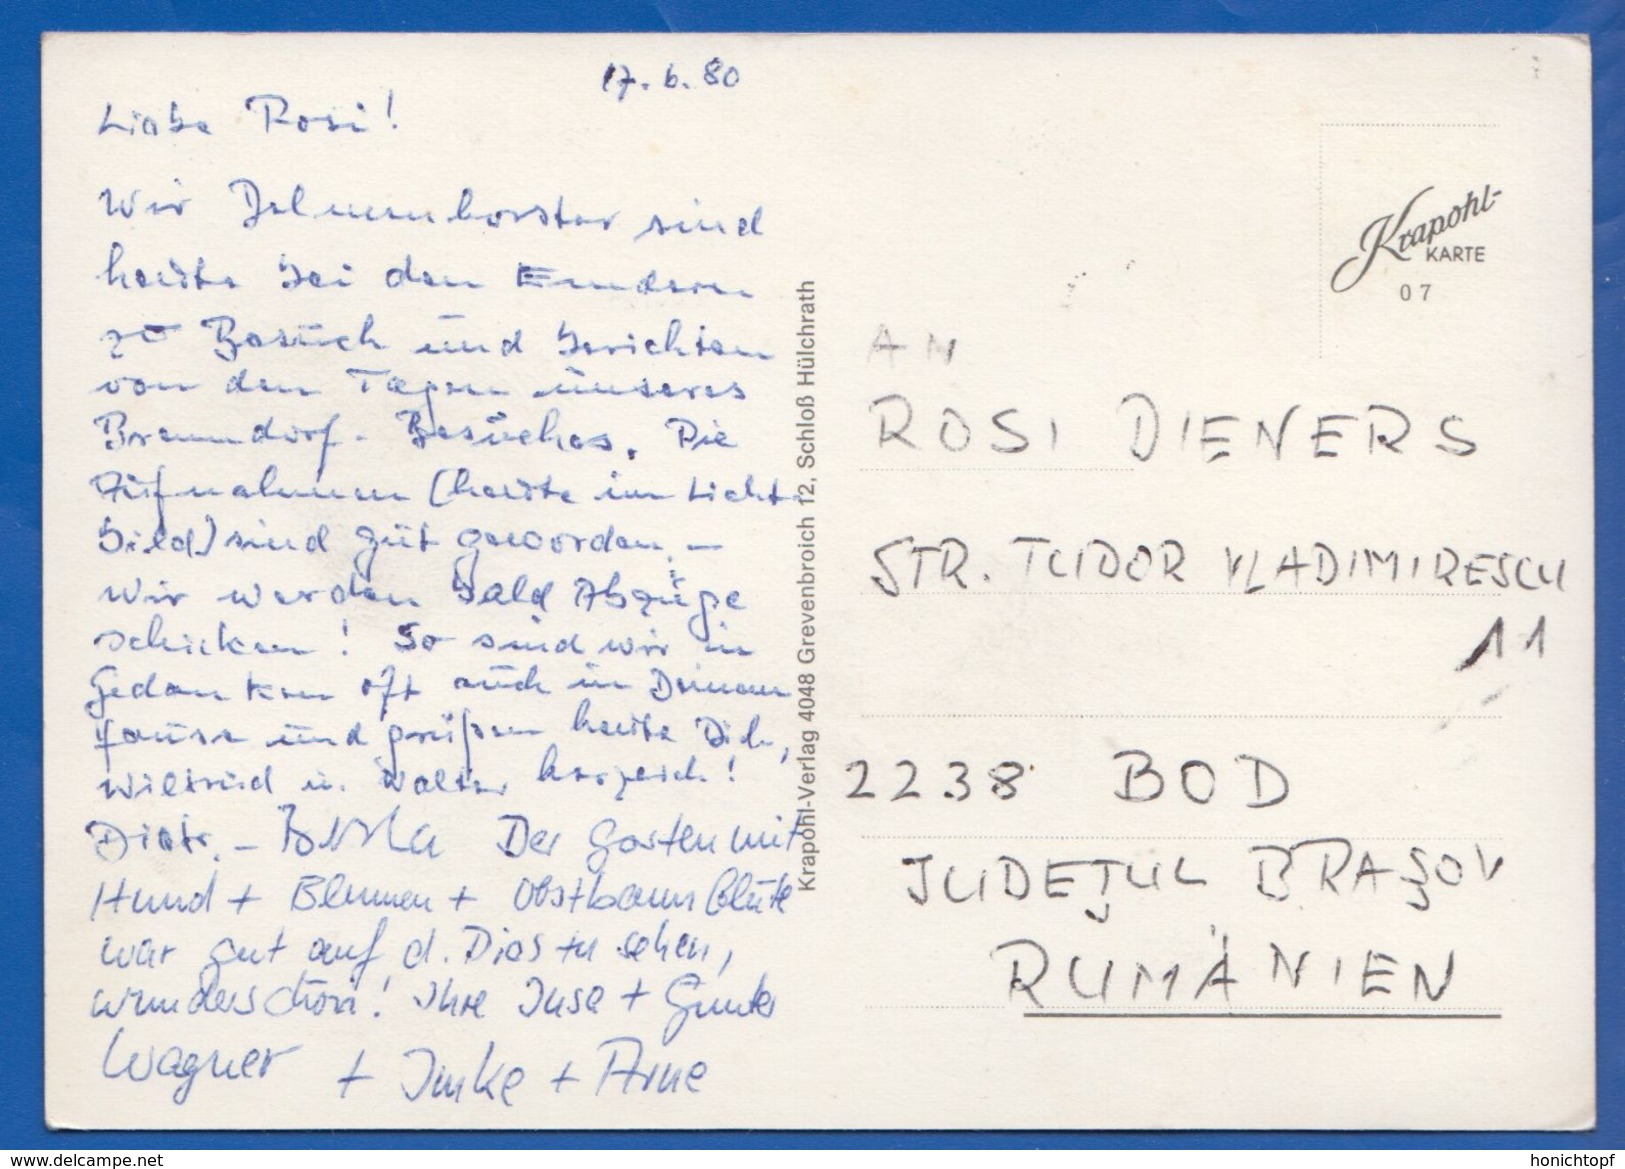 17.6.80
Liebe Rosi!
Wir Delmenhorster sind
heute bei den Emdern
zu Besuch und berichten
von den Tagen unseres
Brenndorf-Besuches. Die
Aufnahmen (heute im Licht-
bild) sind gut geworden. –
Wir werden bald Abzüge
schicken! So sind wir in
Gedanken oft auch in Deinem
Hause und grüßen heute Dich,
Wiltrud u. Walter herzlich!
Dietr. – Der Garten mit
Hund + Blumen + Obstbaumblüte
war gut auf d. Dias zu sehen,
wunderschön! Ihre Inse + Gunter
Wagner + Imke + Arne
Krapohl-Verlag 4048 Grevenbroich 12, Schloß Hülchrath
Krapohl-
KARTE
07
AN
ROSI DIENERS
STR. TUDOR VLADIMIRESCU
11
2238 BOD
JUDEŢUL BRAŞOV
RUMÄNIEN
www.delcampe.net
honichtopf